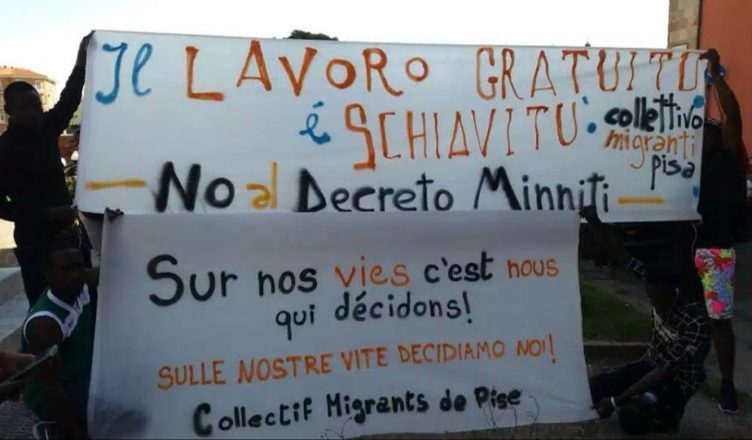 Il LAVORO GRATUITO
é SCHIAVITU'
collettivo
migranti
pisa
— No al Decreto Minniti —
Sur nos vies c'est nous
qui décidons!
SULLE NOSTRE VITE DECIDIAMO NOI!
Collectif Migrants de Pise